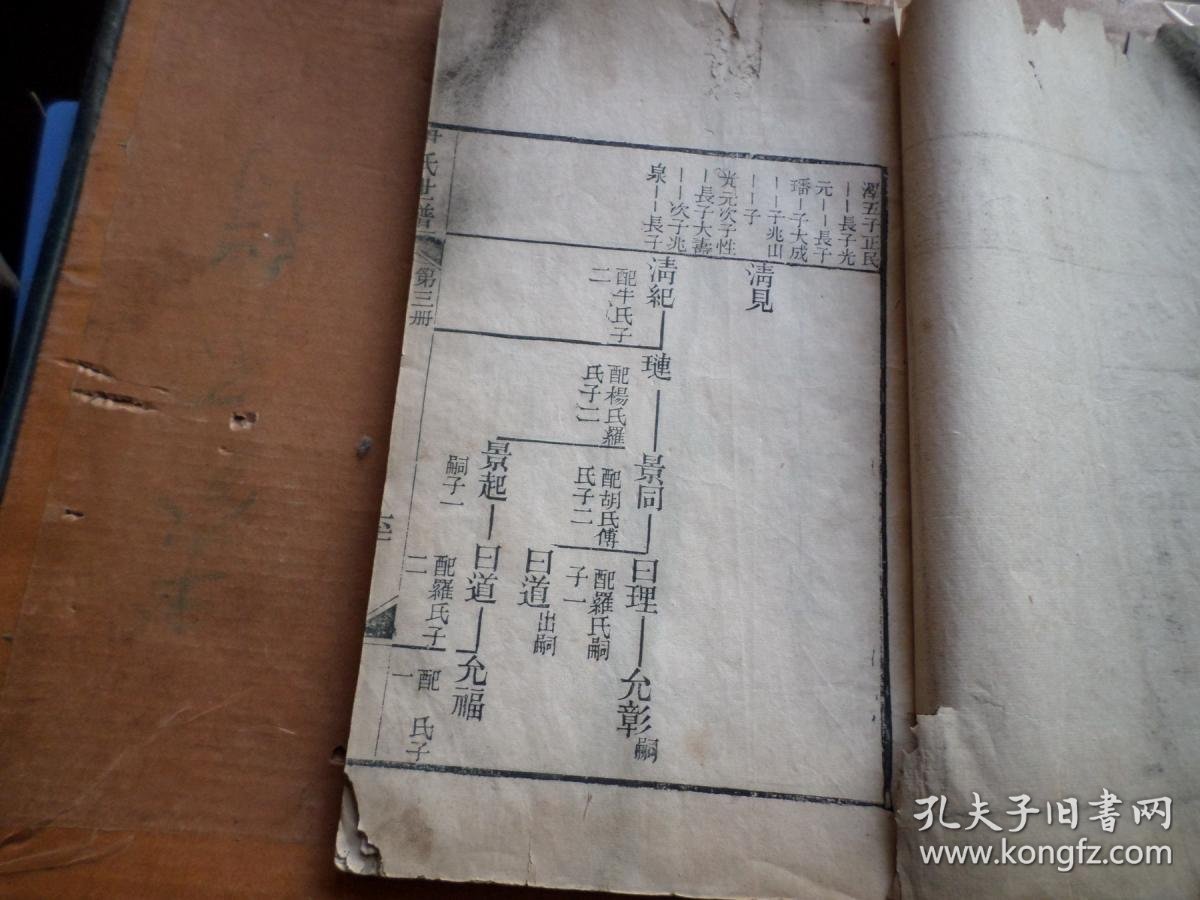 五子正民
一長子光
元一長子
璠一子大成
一一子兆山
一一子
光元次子性
一長子大壽
一一次子兆
泉一一長子
淸見
淸紀
配牛氏子
二
璉
配楊氏羅
氏子二
景同
配胡氏傅
氏子二
曰理
配羅氏嗣
子一
允彰
嗣
曰道
出嗣
景起
嗣子一
曰道
配羅氏子
二
允福
配 氏子
一
氏世譜
第三册
孔夫子旧书网
www.kongfz.com